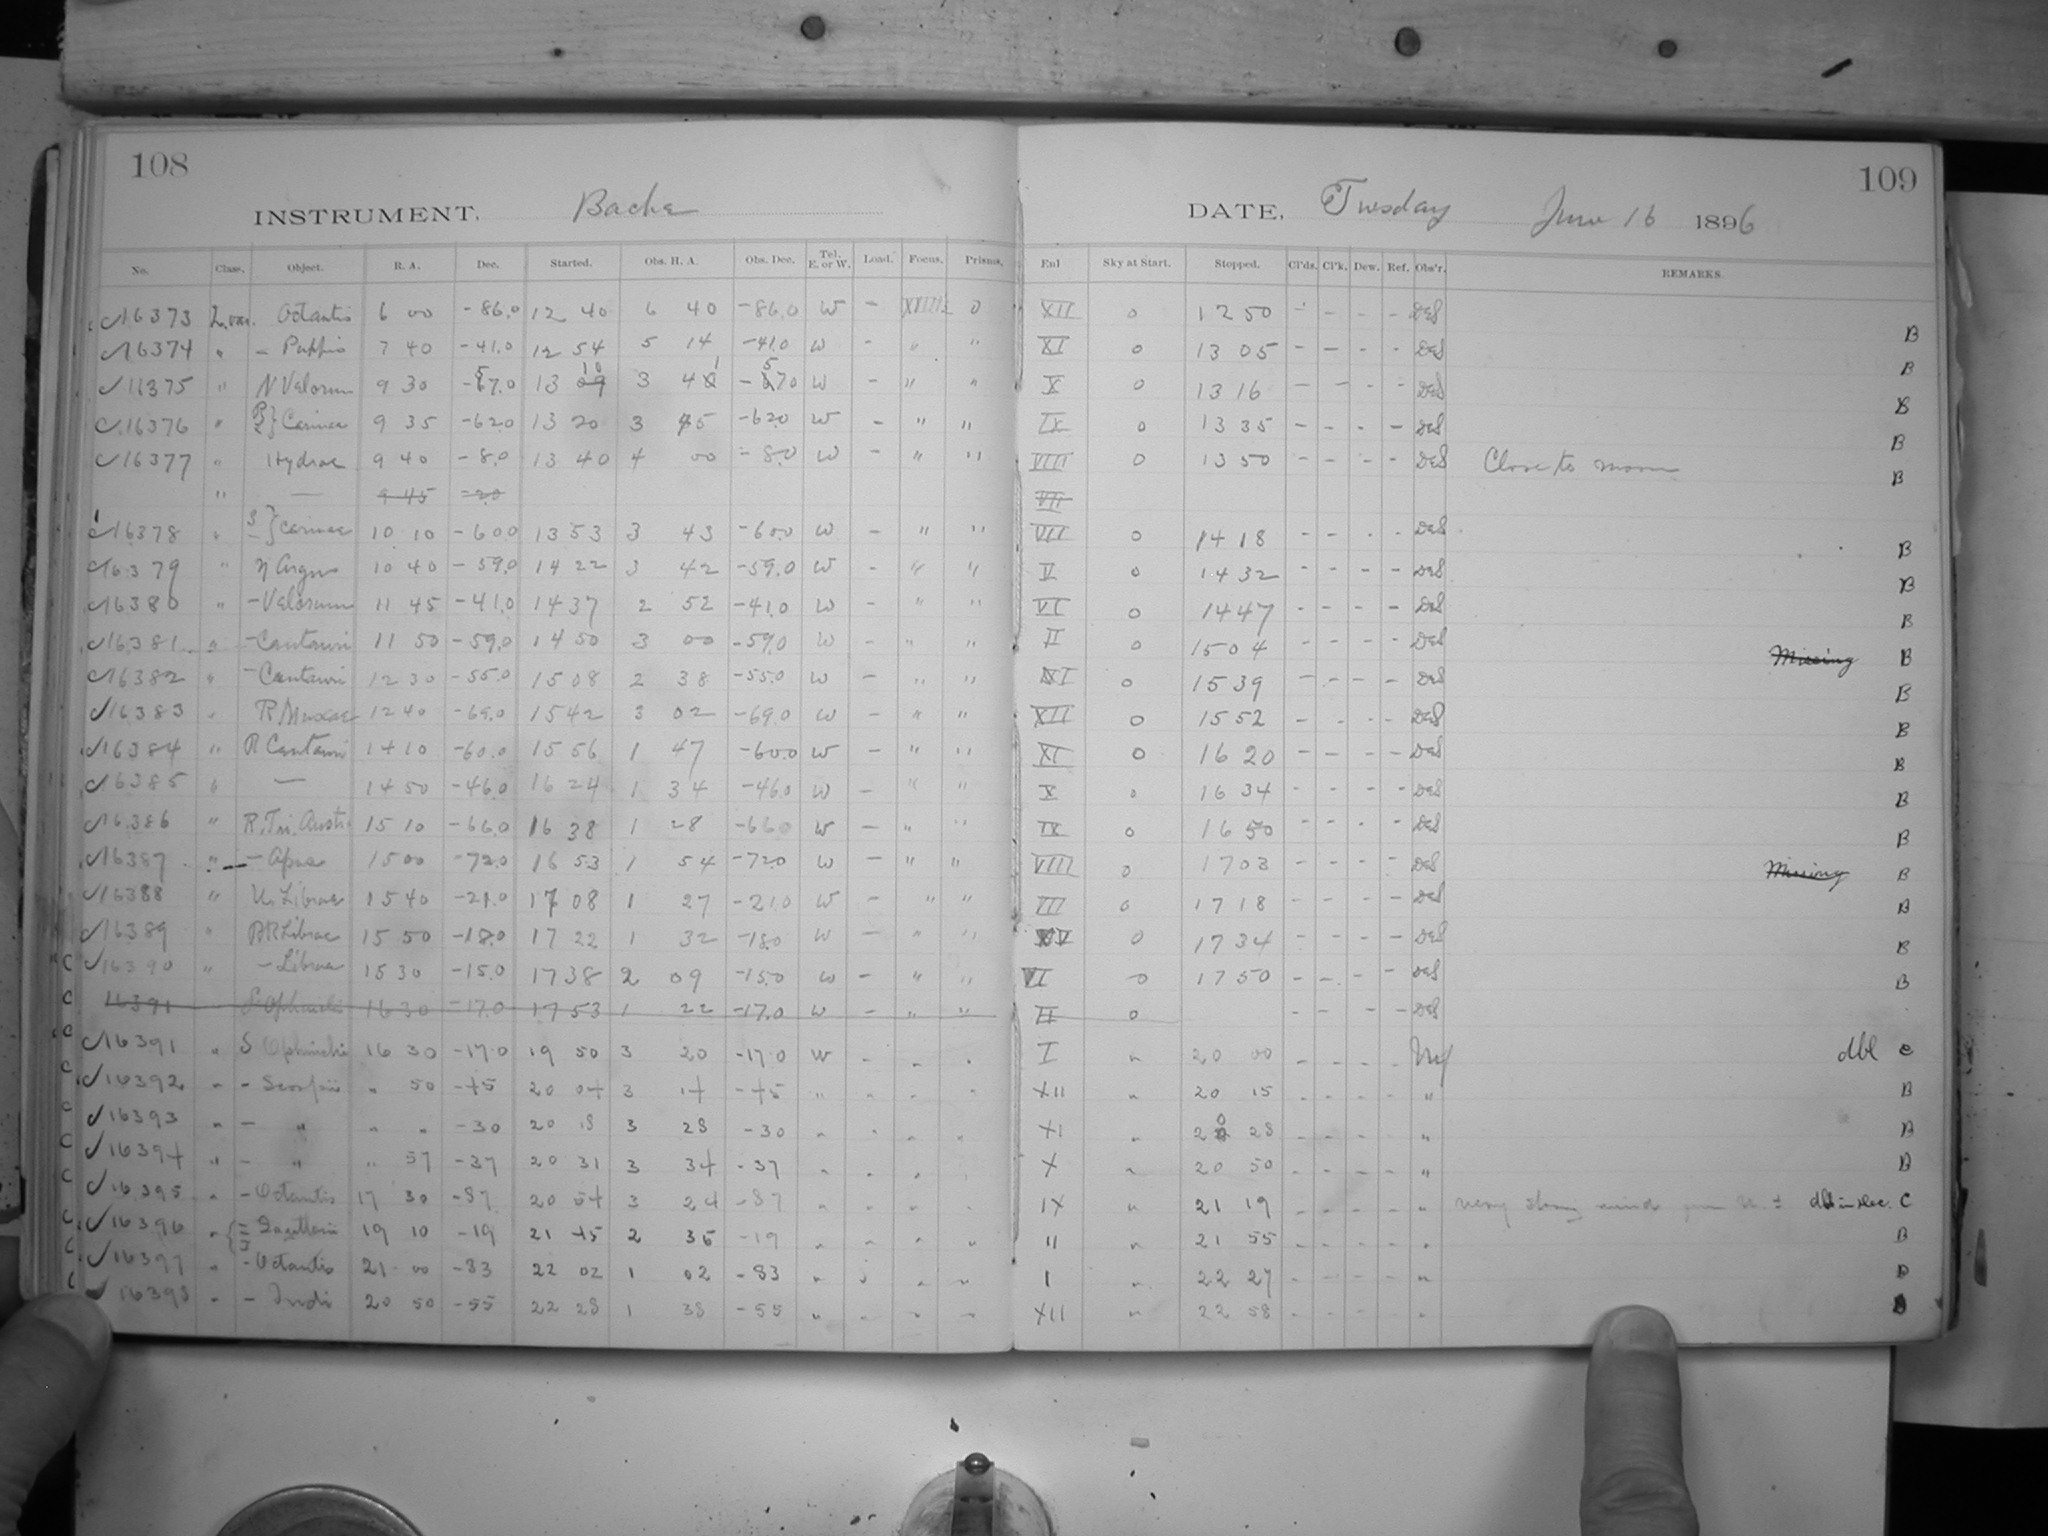 108
109
INSTRUMENT, Bache
DATE, Tuesday June 16 1896
No. Class. Object. R. A. Dec. Started. Obs. H. A. Obs. Dec. Tel. E. or W. Load. Focus. Prisms. Enl Sky at Start. Stopped. Cl'ds. Cl'k. Dew. Ref. Obs'r. REMARKS.
16373 L.var. Octantis 6 00 -86.0 12 40 6 40 -86.0 W - 0 XII 0 12 50 - - - - DeS B
16374 " - Puppis 7 40 -41.0 12 54 5 14 -41.0 W - " " XI 0 13 05 - - - - DeS B
11375 " N Velorum 9 30 -57.0 13 10 3 41 -57.0 W - " " X 0 13 16 - - - - DeS B
16376 " Carinae 9 35 -62.0 13 20 3 45 -62.0 W - " " IX 0 13 35 - - - - DeS B
16377 " Hydrae 9 40 -8.0 13 40 4 00 -8.0 W - " " VIII 0 13 50 - - - - DeS Close to moon B
" — 9 45 -20 VII
16378 " Carinae 10 10 -60.0 13 53 3 43 -60.0 W - " " VII 0 14 18 - - - - DeS B
16379 " η Argus 10 40 -59.0 14 22 3 42 -59.0 W - " " V 0 14 32 - - - - DeS B
16380 " - Velorum 11 45 -41.0 14 37 2 52 -41.0 W - " " VI 0 14 47 - - - - DeS B
16381 " - Centauri 11 50 -59.0 14 50 3 00 -59.0 W - " " II 0 15 04 - - - - DeS Missing B
16382 " - Centauri 12 30 -55.0 15 08 2 38 -55.0 W - " " XI 0 15 39 - - - - DeS B
16383 " R Muscae 12 40 -69.0 15 42 3 02 -69.0 W - " " XII 0 15 52 - - - - DeS B
16384 " R Centauri 14 10 -60.0 15 56 1 47 -60.0 W - " " XI 0 16 20 - - - - DeS B
16385 " — 14 50 -46.0 16 24 1 34 -46.0 W - " " X 0 16 34 - - - - DeS B
16386 " R. Tri. Austr. 15 10 -66.0 16 38 1 28 -66.0 W - " " IX 0 16 50 - - - - DeS B
16387 " - Apus 15 00 -72.0 16 53 1 54 -72.0 W - " " VIII 0 17 03 - - - - DeS Missing B
16388 " U. Librae 15 40 -21.0 17 08 1 27 -21.0 W - " " VII 0 17 18 - - - - DeS B
16389 " RR Librae 15 50 -18.0 17 22 1 32 -18.0 W - " " V 0 17 34 - - - - DeS B
C 16390 " - Librae 15 30 -15.0 17 38 2 09 -15.0 W - " " VI 0 17 50 - - - - DeS B
C 16391 S Ophiuchi 16 30 -17.0 17 53 1 22 -17.0 W - " " II 0 - - - - DeS
C 16391 " S Ophiuchi 16 30 -17.0 19 50 3 20 -17.0 W - I " 20 00 - - - - dbl C
C 16392 " - Scorpii " 50 -45 20 04 3 14 -45 " XII " 20 15 - - - - " B
C 16393 " - " " " -30 20 18 3 28 -30 " XI " 20 28 - - - - " B
C 16394 " - " " 57 -37 20 31 3 34 -37 " X " 20 50 - - - - " B
C 16395 " - Octantis 17 30 -87 20 54 3 24 -87 " IX " 21 19 - - - - " very strong wind from dbl in Dec. C
C 16396 " Sagittarii 19 10 -19 21 45 2 35 -19 " II " 21 55 - - - - " B
C 16397 " - Octantis 21 00 -83 22 02 1 02 -83 " I " 22 27 - - - - " B
C 16398 " - Indi 20 50 -55 22 28 1 38 -55 " XII " 22 58 - - - - " B